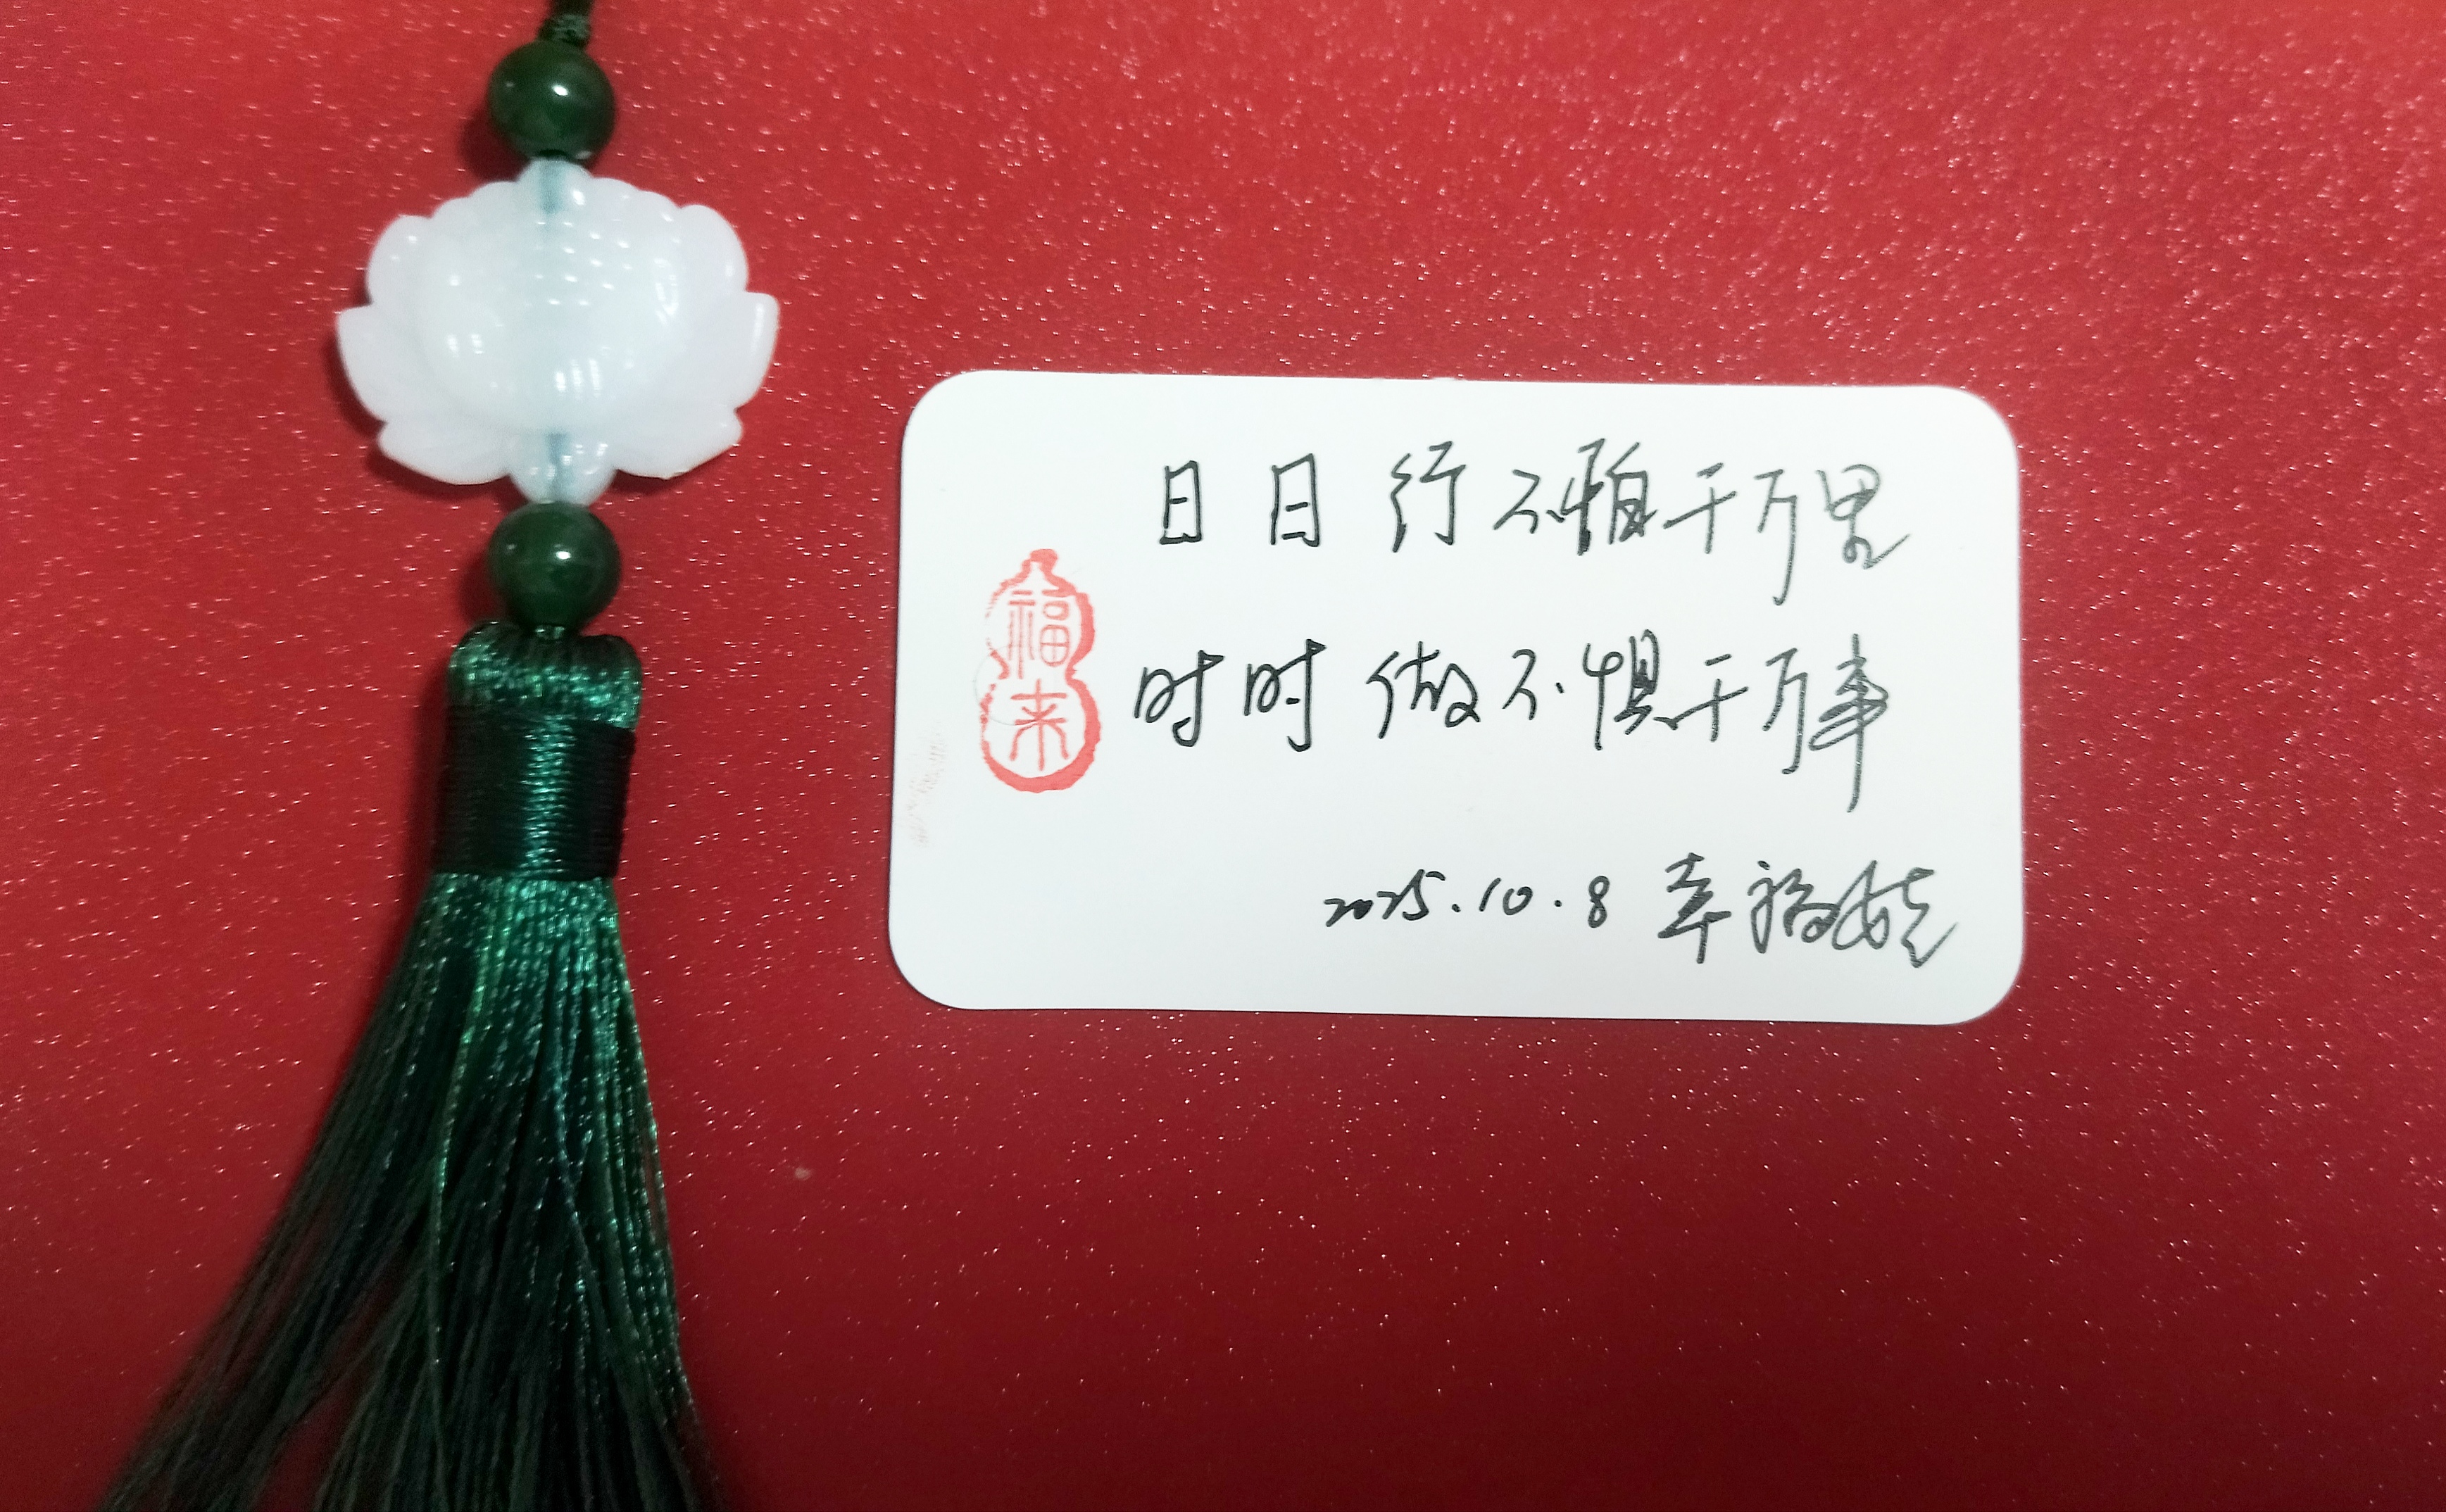 日日行不怕千万里
时时做不惧千万事
2025.10.8 幸福娃
福来